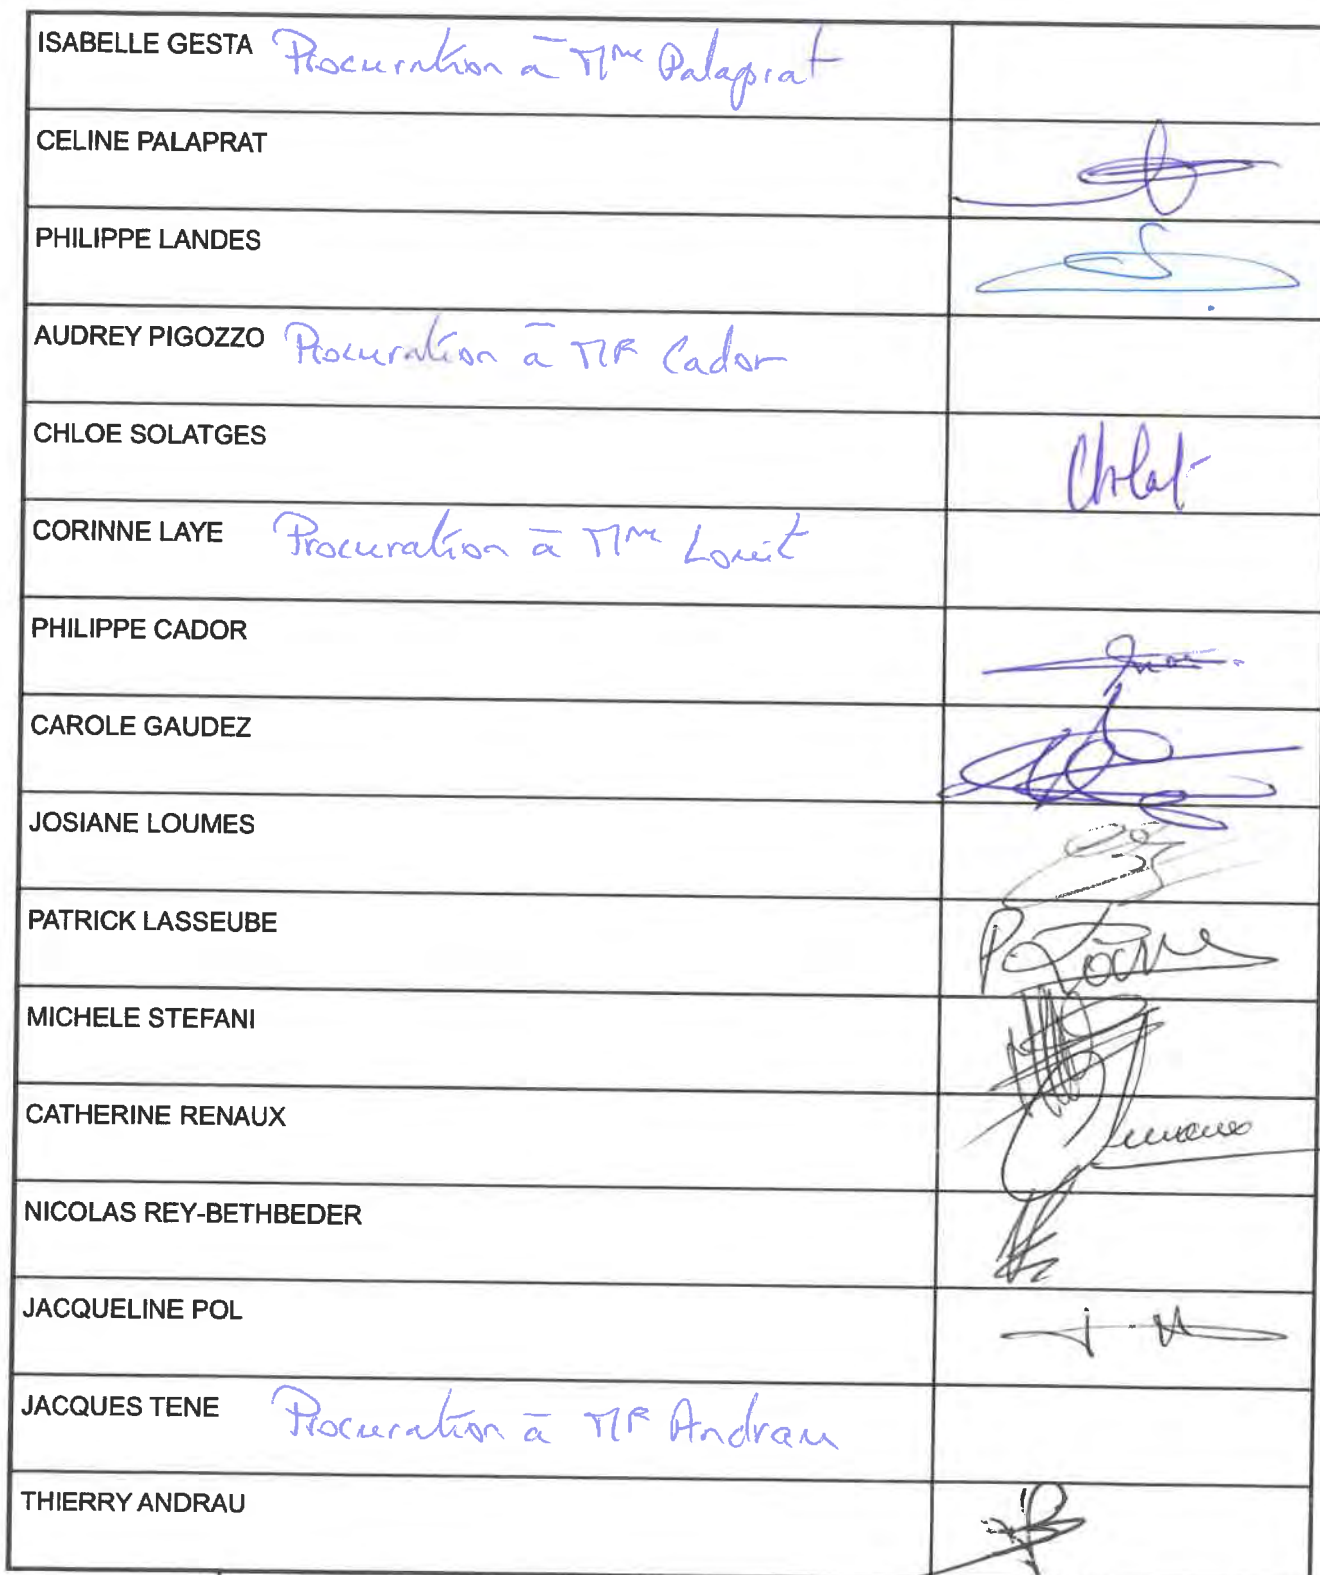 ISABELLE GESTA Procuration à Mme Palaprat
CELINE PALAPRAT
PHILIPPE LANDES
AUDREY PIGOZZO Procuration à Mr Cador
CHLOE SOLATGES
CORINNE LAYE Procuration à Mme Louit
PHILIPPE CADOR
CAROLE GAUDEZ
JOSIANE LOUMES
PATRICK LASSEUBE
MICHELE STEFANI
CATHERINE RENAUX
NICOLAS REY-BETHBEDER
JACQUELINE POL
JACQUES TENE Procuration à Mr Andrau
THIERRY ANDRAU